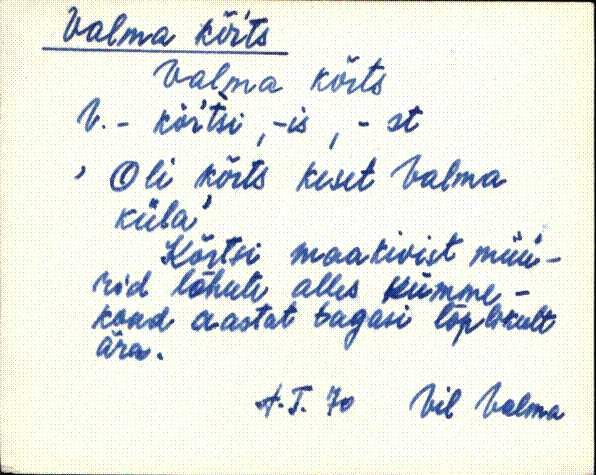 Valma kõrts
Valma kõrts
V. - kõrtsi, -is, - st
'Oli kõrts keset Valma
küla'
Kõrtsi maakivist müü-
rid lõhuti alles kümme-
kond aastat tagasi lõplikult
ära.
A.T. 70 Vil Valma